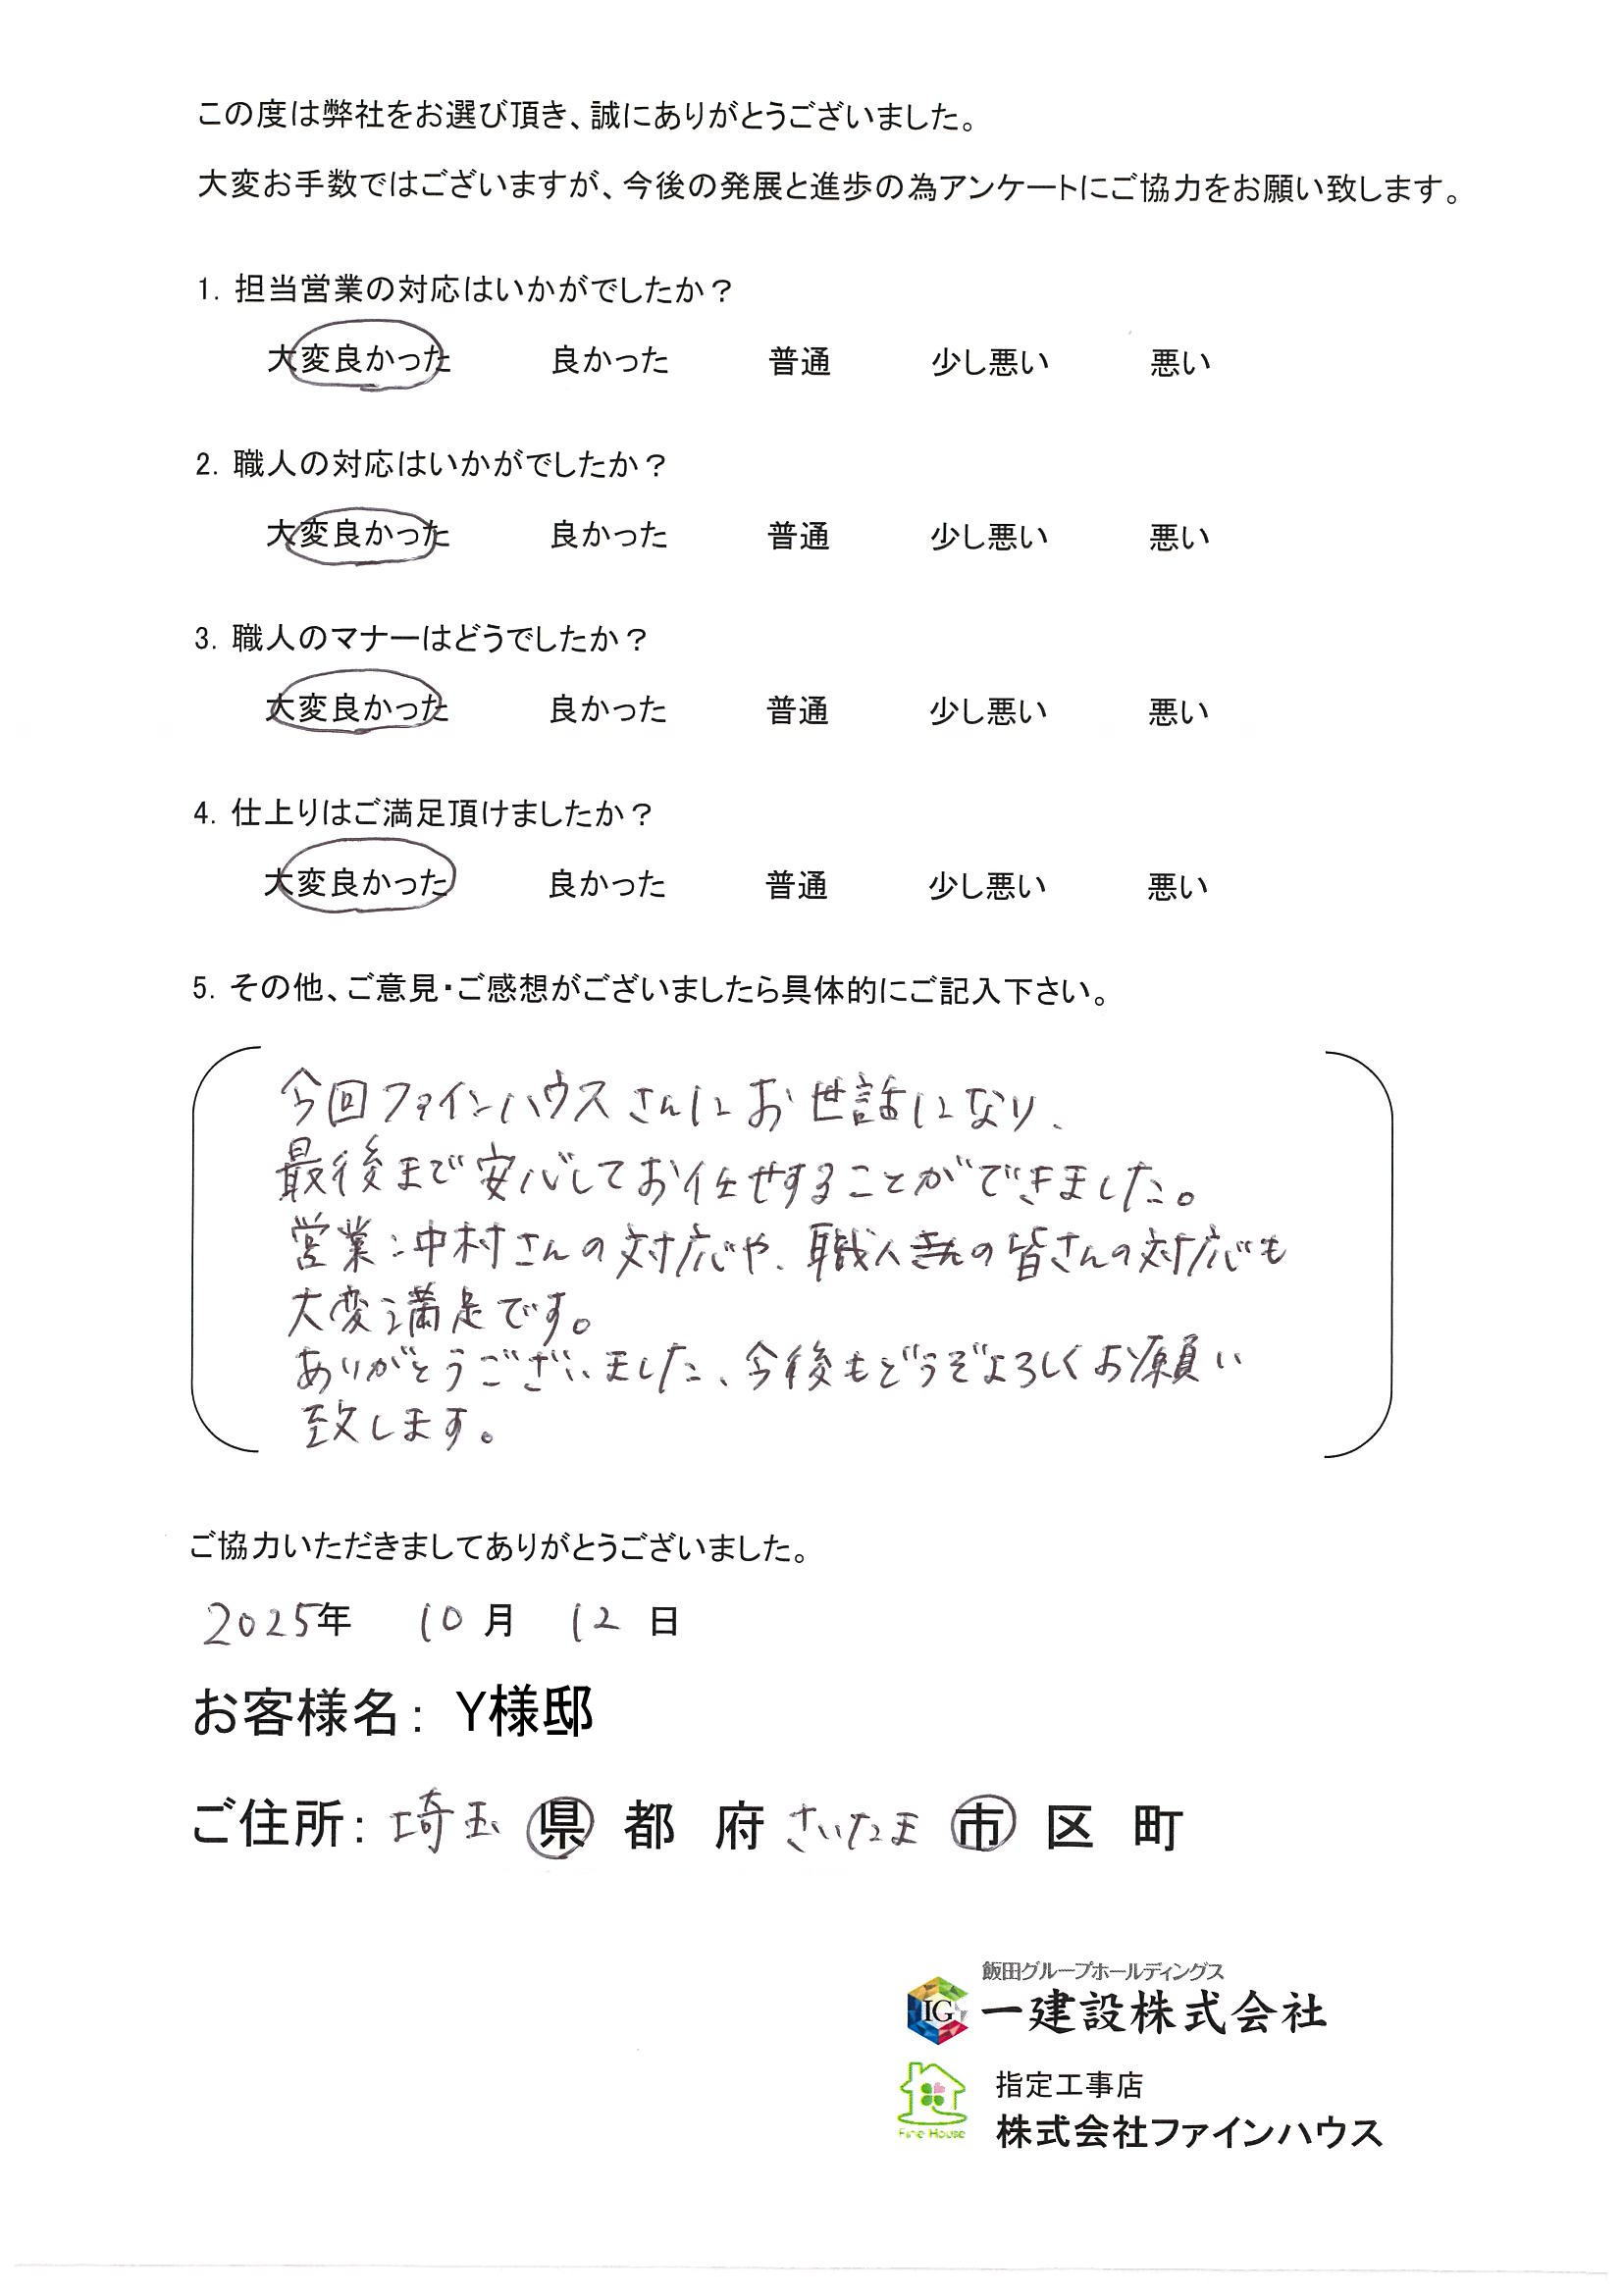 この度は弊社をお選び頂き、誠にありがとうございました。
大変お手数ではございますが、今後の発展と進歩の為アンケートにご協力をお願い致します。
1. 担当営業の対応はいかがでしたか？
大変良かった 良かった 普通 少し悪い 悪い
2. 職人の対応はいかがでしたか？
大変良かった 良かった 普通 少し悪い 悪い
3. 職人のマナーはどうでしたか？
大変良かった 良かった 普通 少し悪い 悪い
4. 仕上りはご満足頂けましたか？
大変良かった 良かった 普通 少し悪い 悪い
5. その他、ご意見・ご感想がございましたら具体的にご記入下さい。
今回ファインハウスさんにお世話になり、
最後まで安心してお任せすることができました。
営業：中村さんの対応や、職人さんの皆さんの対応も
大変満足です。
ありがとうございました、今後もどうぞよろしくお願い
致します。
ご協力いただきましてありがとうございました。
2025年 10月 12日
お客様名： Y様邸
ご住所： 埼玉 県 都 府 さいたま 市 区 町
飯田グループホールディングス
IG 一建設株式会社
指定工事店
Fine House 株式会社ファインハウス